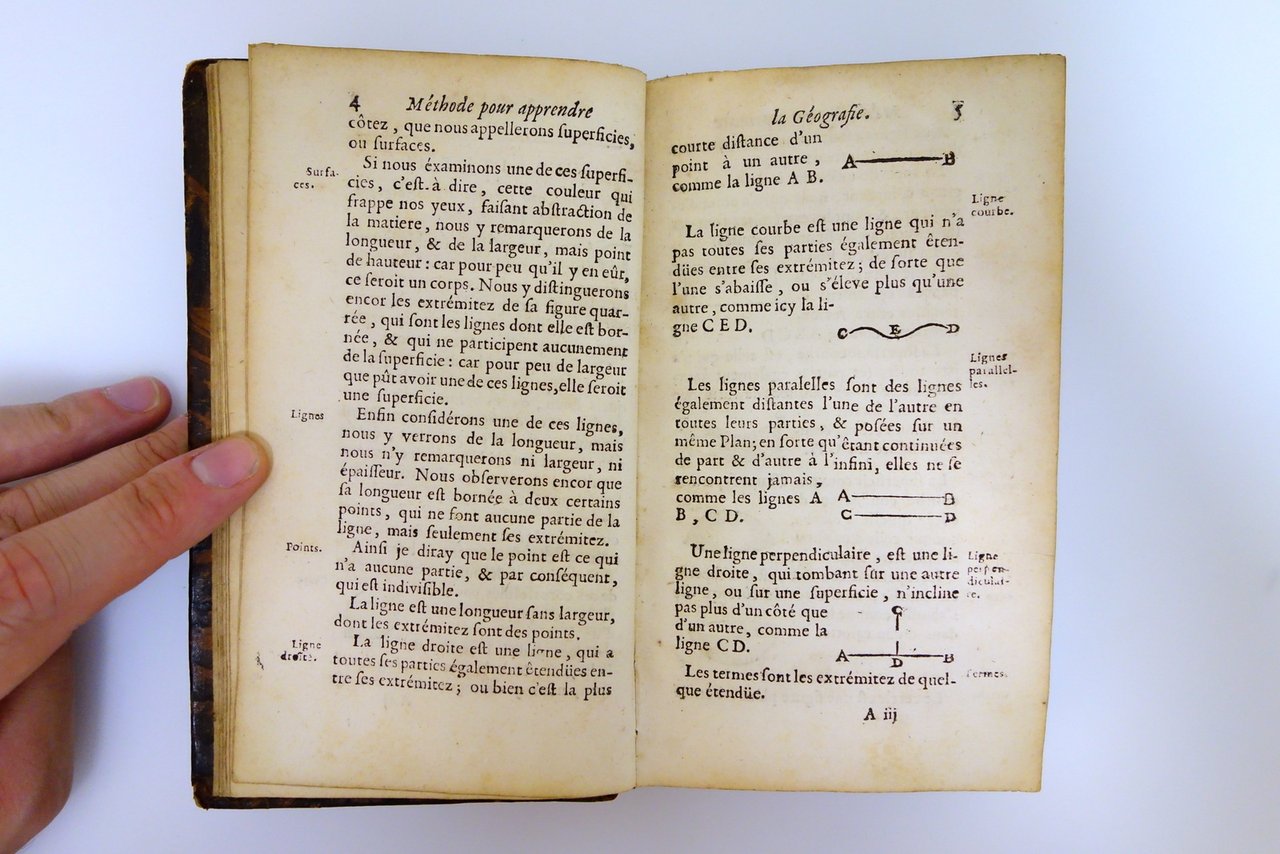 4 Méthode pour apprendre
côtez, que nous appellerons ſuperficies,
ou ſurfaces.
Surfa-
ces.
Si nous éxaminons une de ces ſuperfi-
cies, c'eſt-à dire, cette couleur qui
frappe nos yeux, faiſant abſtraction de
la matiere, nous y remarquerons de la
longueur, & de la largeur, mais point
de hauteur : car pour peu qu'il y en eût,
ce ſeroit un corps. Nous y diſtinguerons
encor les extrémitez de ſa figure quar-
rée, qui ſont les lignes dont elle eſt bor-
née, & qui ne participent aucunement
de la ſuperficie : car pour peu de largeur
que pût avoir une de ces lignes, elle ſeroit
une ſuperficie.
Lignes
Enfin conſidérons une de ces lignes,
nous y verrons de la longueur, mais
nous n'y remarquerons ni largeur, ni
épaiſſeur. Nous obſerverons encor que
ſa longueur eſt bornée à deux certains
points, qui ne font aucune partie de la
ligne, mais ſeulement ſes extrémitez.
Points.
Ainſi je diray que le point eſt ce qui
n'a aucune partie, & par conſéquent,
qui eſt indiviſible.
La ligne eſt une longueur ſans largeur,
dont les extrémitez ſont des points.
Ligne
droite.
La ligne droite eſt une ligne, qui a
toutes ſes parties également êtendües en-
tre ſes extrémitez ; ou bien c'eſt la plus
la Géografie. 5
courte diſtance d'un
point à un autre,
comme la ligne A B.
A B
Ligne
courbe.
La ligne courbe eſt une ligne qui n'a
pas toutes ſes parties également êten-
dües entre ſes extrémitez ; de ſorte que
l'une s'abaiſſe, ou s'éleve plus qu'une
autre, comme icy la li-
gne C E D.
C E D
Lignes
parallel-
les.
Les lignes paralelles ſont des lignes
également diſtantes l'une de l'autre en
toutes leurs parties, & poſées ſur un
même Plan; en ſorte qu'êtant continuées
de part & d'autre à l'infini, elles ne ſe
rencontrent jamais,
comme les lignes A
B, C D.
A B
C D
Ligne
perpen-
diculai-
re.
Une ligne perpendiculaire, eſt une li-
gne droite, qui tombant ſur une autre
ligne, ou ſur une ſuperficie, n'incline
pas plus d'un côté que
d'un autre, comme la
ligne C D.
C
A D B
Termes.
Les termes ſont les extrémitez de quel-
que étendüe.
A iij